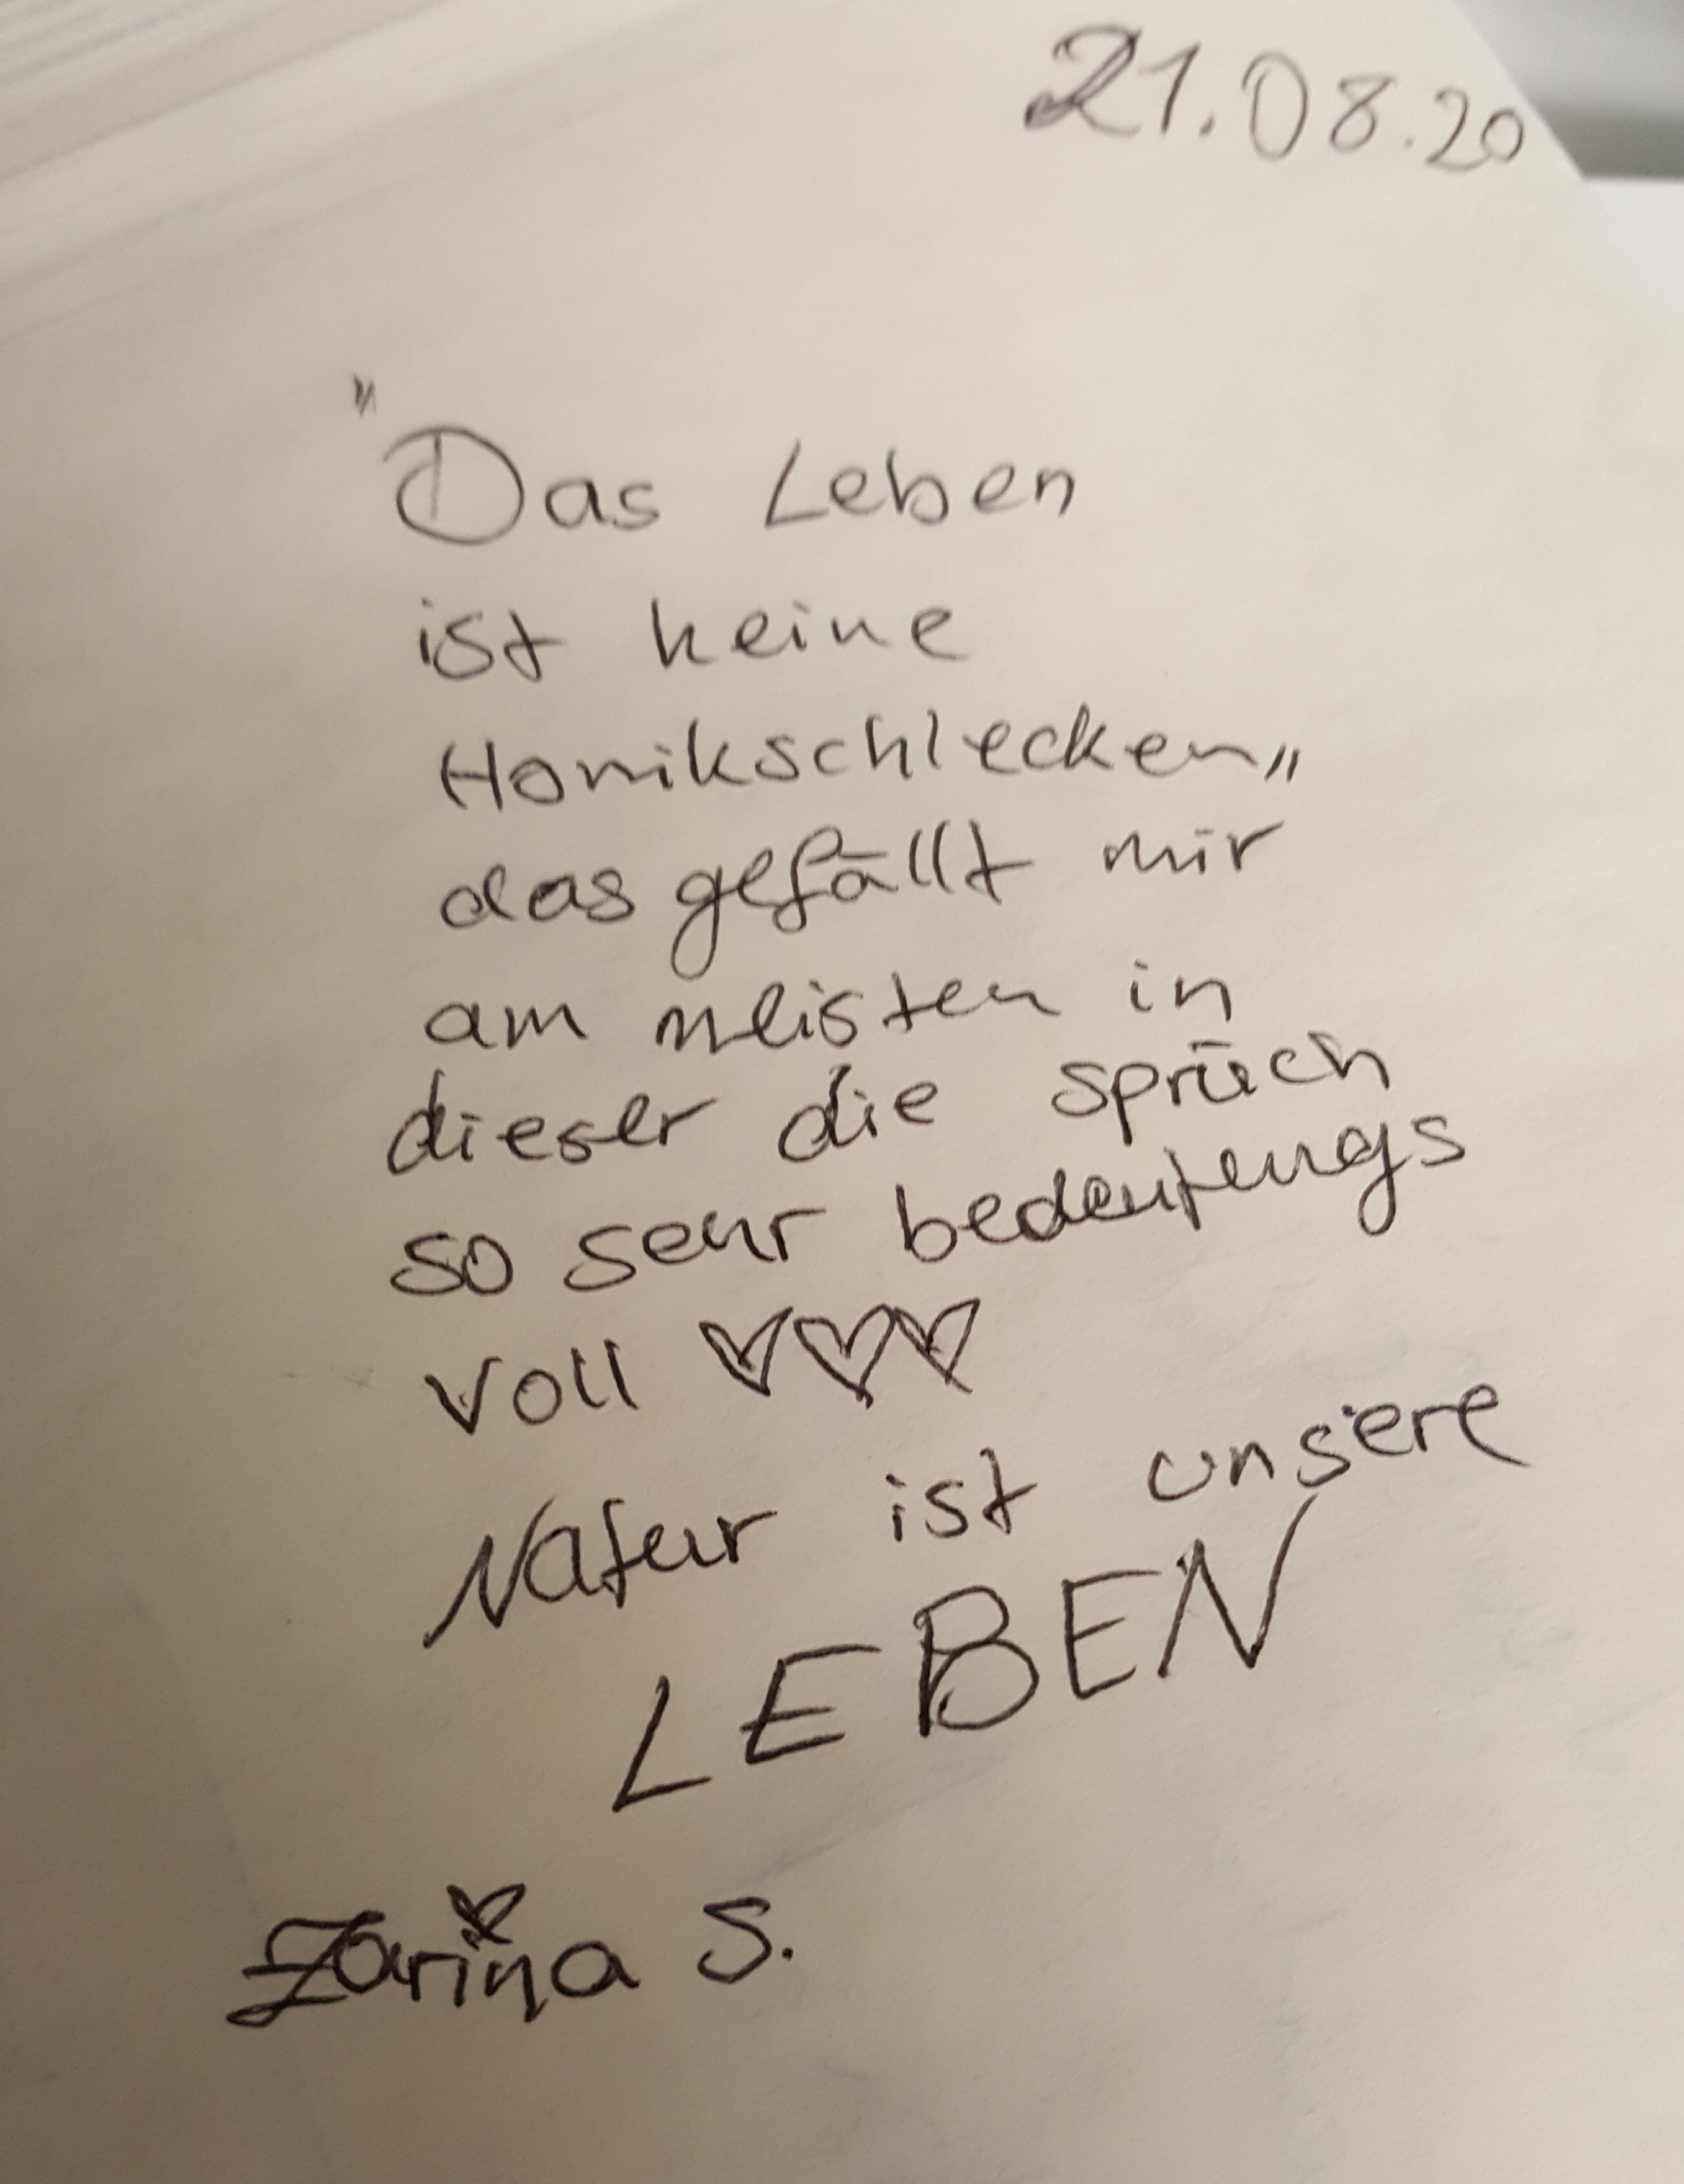 21.08.20
"Das Leben
ist keine
Honikschlecken"
das gefällt mir
am meisten in
dieser die sprüch
so sehr bedeutungs
voll ♡♡♡
Natur ist unsere
LEBEN
Zarina S.